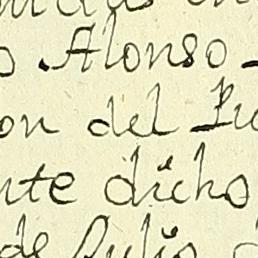 o Alonso
on del Pu
nte dicho
de Julio d